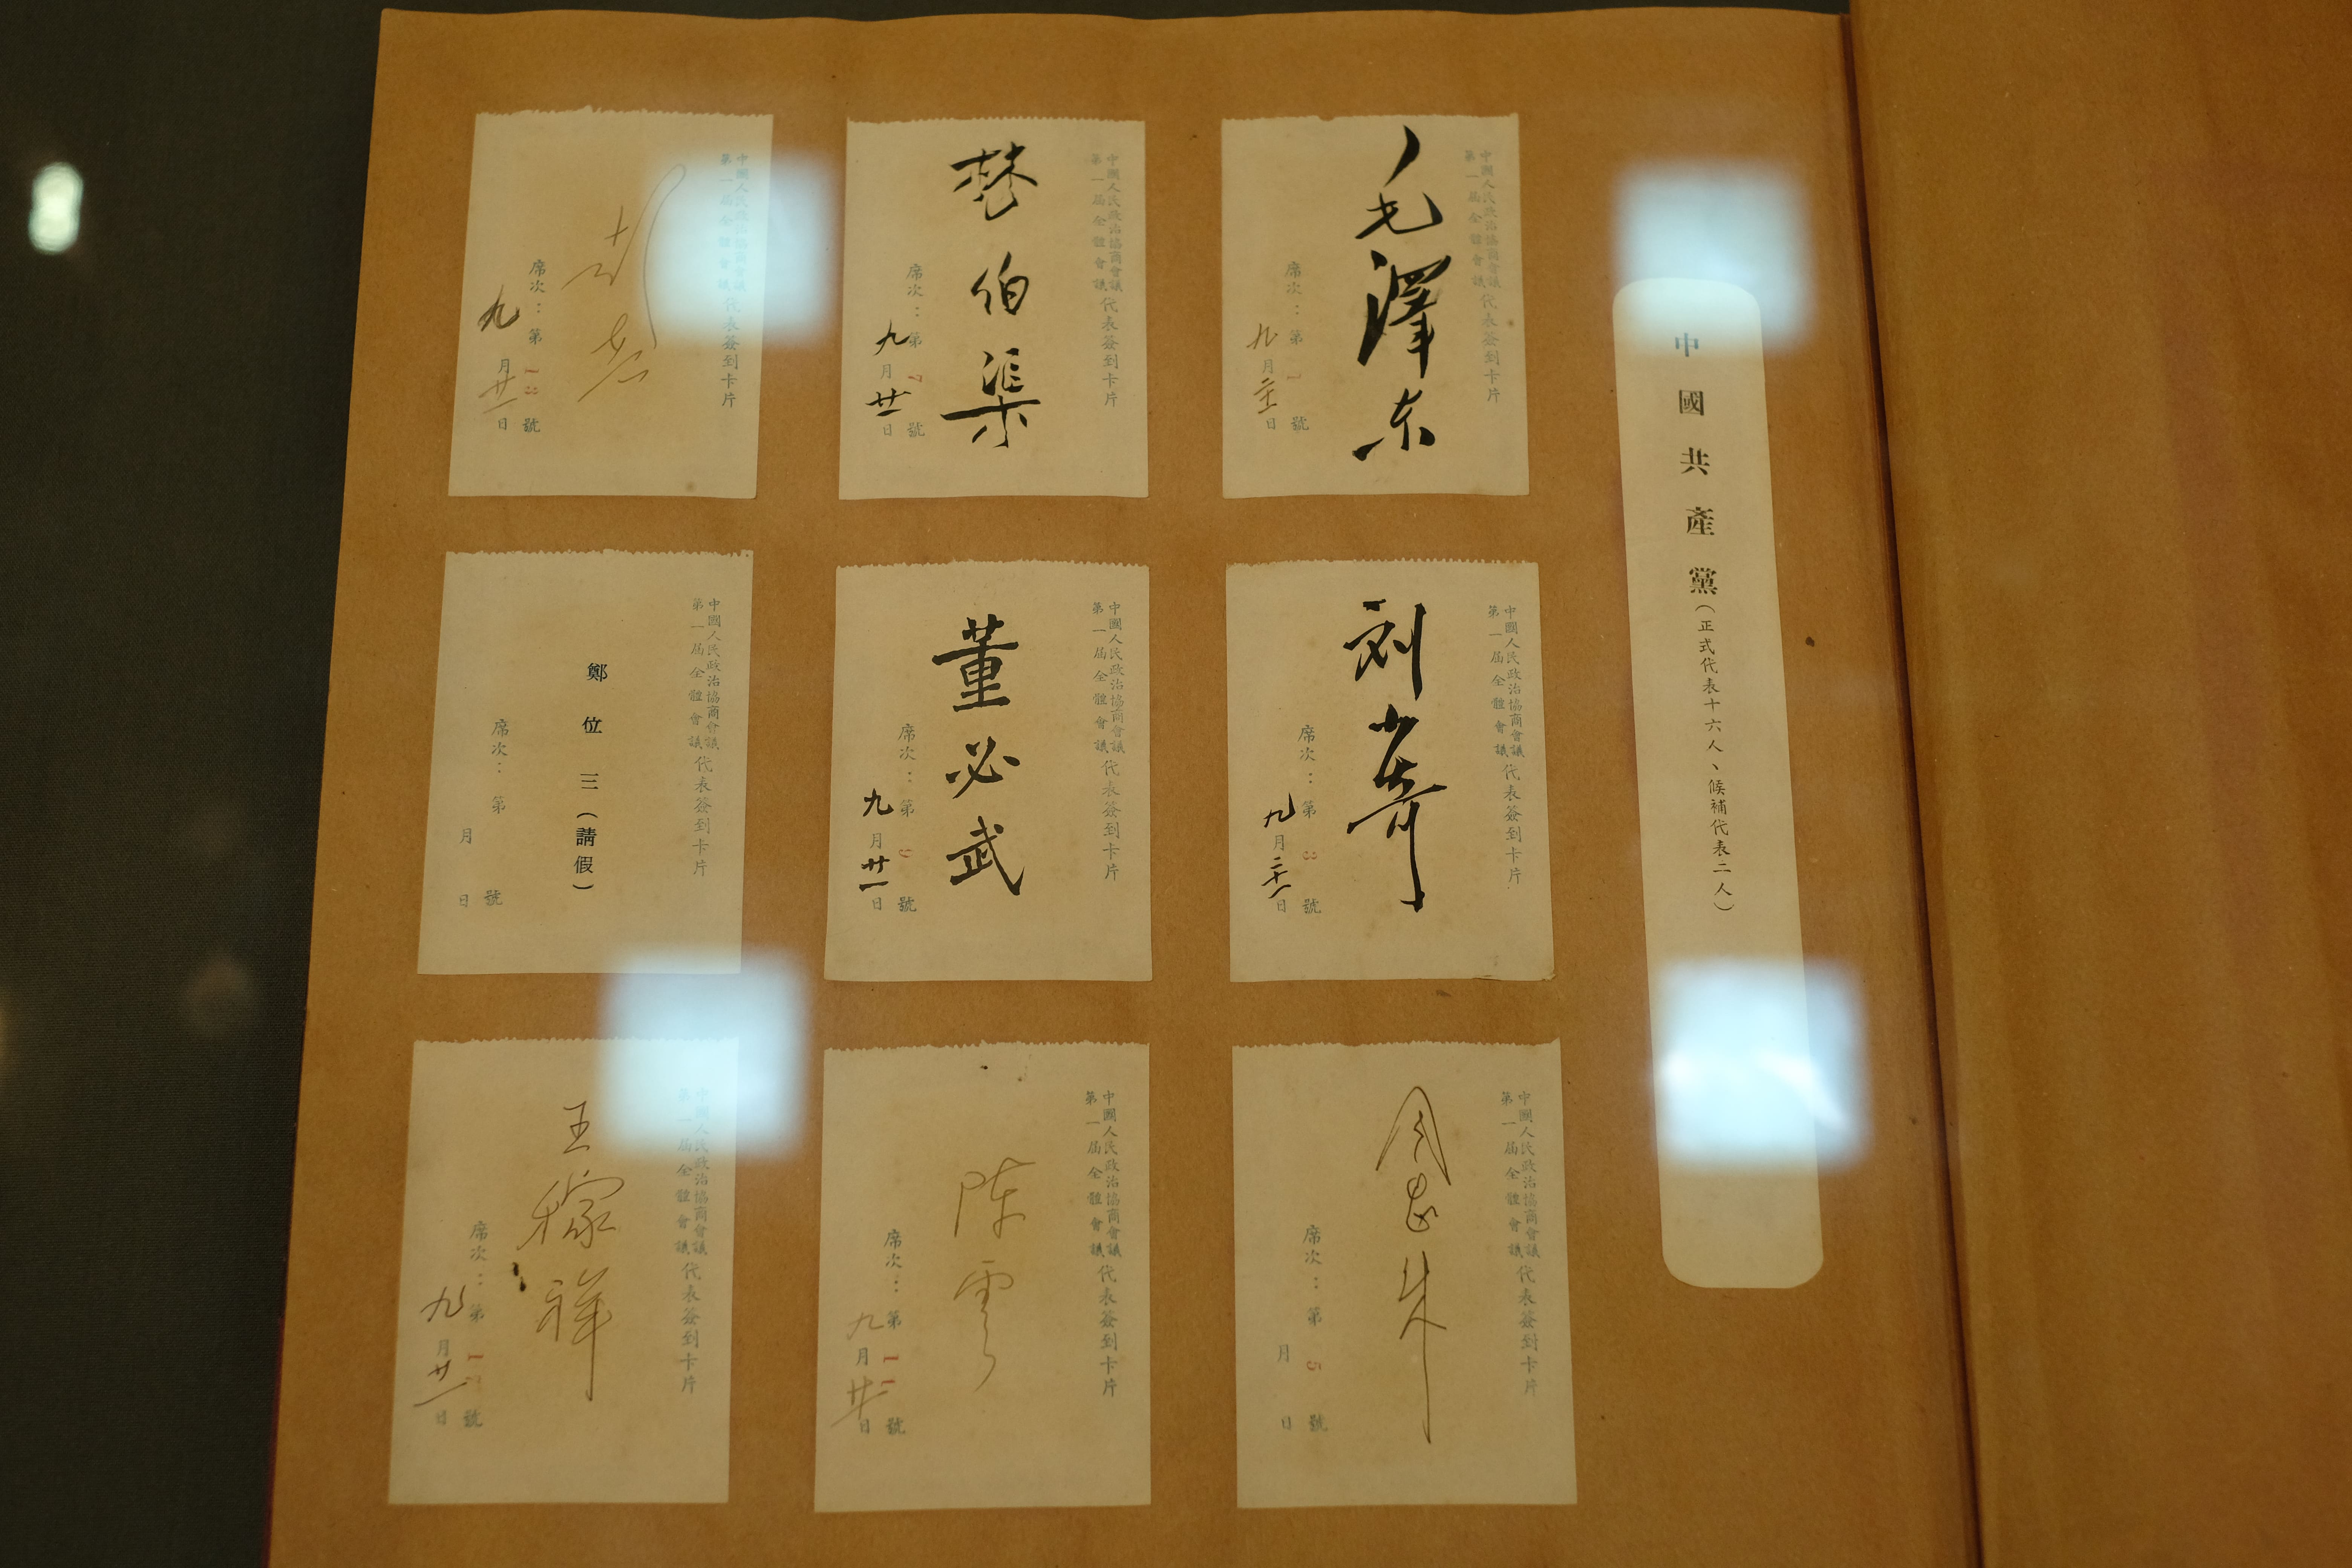 中國共產黨(正式代表十六人、候補代表二人)
中國人民政治協商會議
第一屆全體會議
代表簽到卡片
毛澤东
席次:第1號
九月二十一日
中國人民政治協商會議
第一屆全體會議
代表簽到卡片
刘少奇
席次:第3號
九月二十一日
中國人民政治協商會議
第一屆全體會議
代表簽到卡片
周恩来
席次:第5號
月 日
中國人民政治協商會議
第一屆全體會議
代表簽到卡片
林伯渠
席次:第7號
九月廿一日
中國人民政治協商會議
第一屆全體會議
代表簽到卡片
董必武
席次:第9號
九月廿一日
中國人民政治協商會議
第一屆全體會議
代表簽到卡片
陈雲
席次:第11號
九月廿一日
中國人民政治協商會議
第一屆全體會議
代表簽到卡片
席次:第 號
九月廿一日
中國人民政治協商會議
第一屆全體會議
代表簽到卡片
鄭位三(請假)
席次:第 號
月 日
中國人民政治協商會議
第一屆全體會議
代表簽到卡片
王稼祥
席次:第 號
九月廿一日